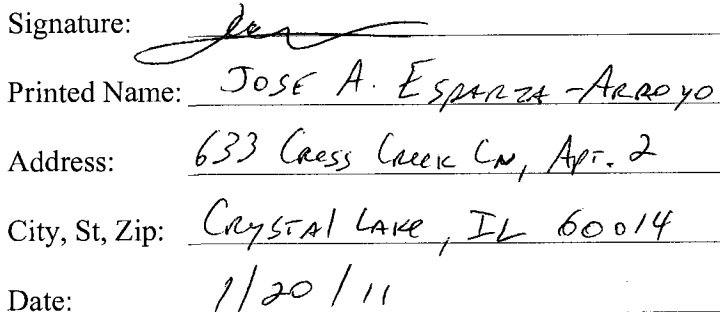 Signature:
Printed Name: JOSE A. ESPARZA-ARROYO
Address: 633 CRESS CREEK LN, APT. 2
City, St, Zip: CRYSTAL LAKE, IL 60014
Date: 1/20/11